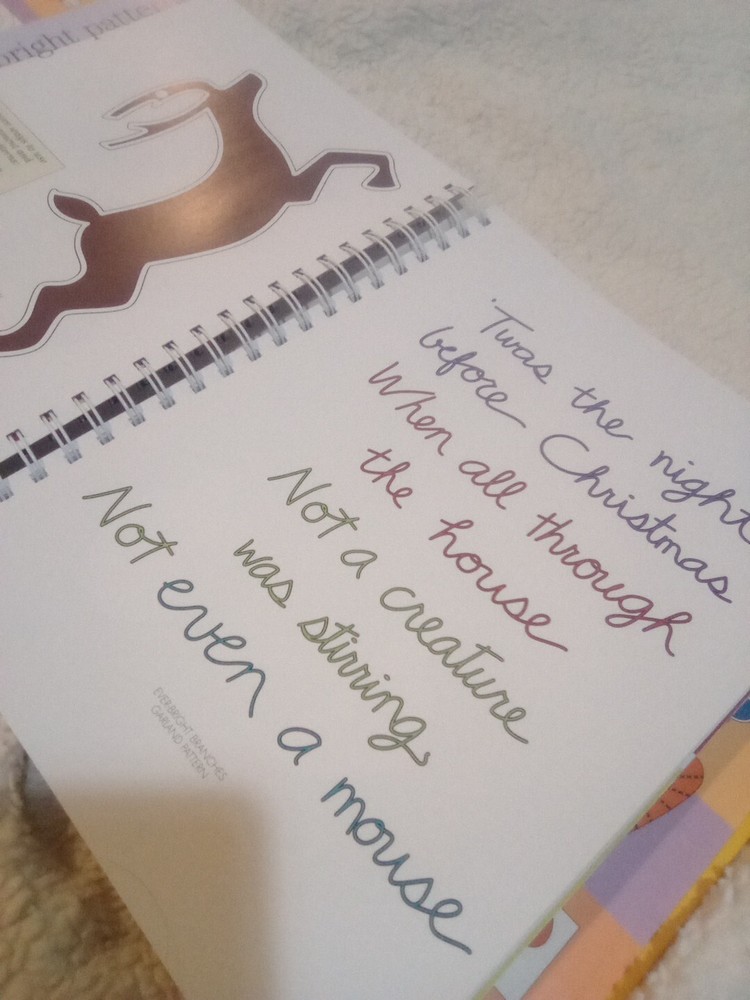 bright
'Twas the night
before Christmas
When all through
the house
Not a creature
was stirring,
Not even a mouse
EVER-BRIGHT BRANCHES
GARLAND PATTERN